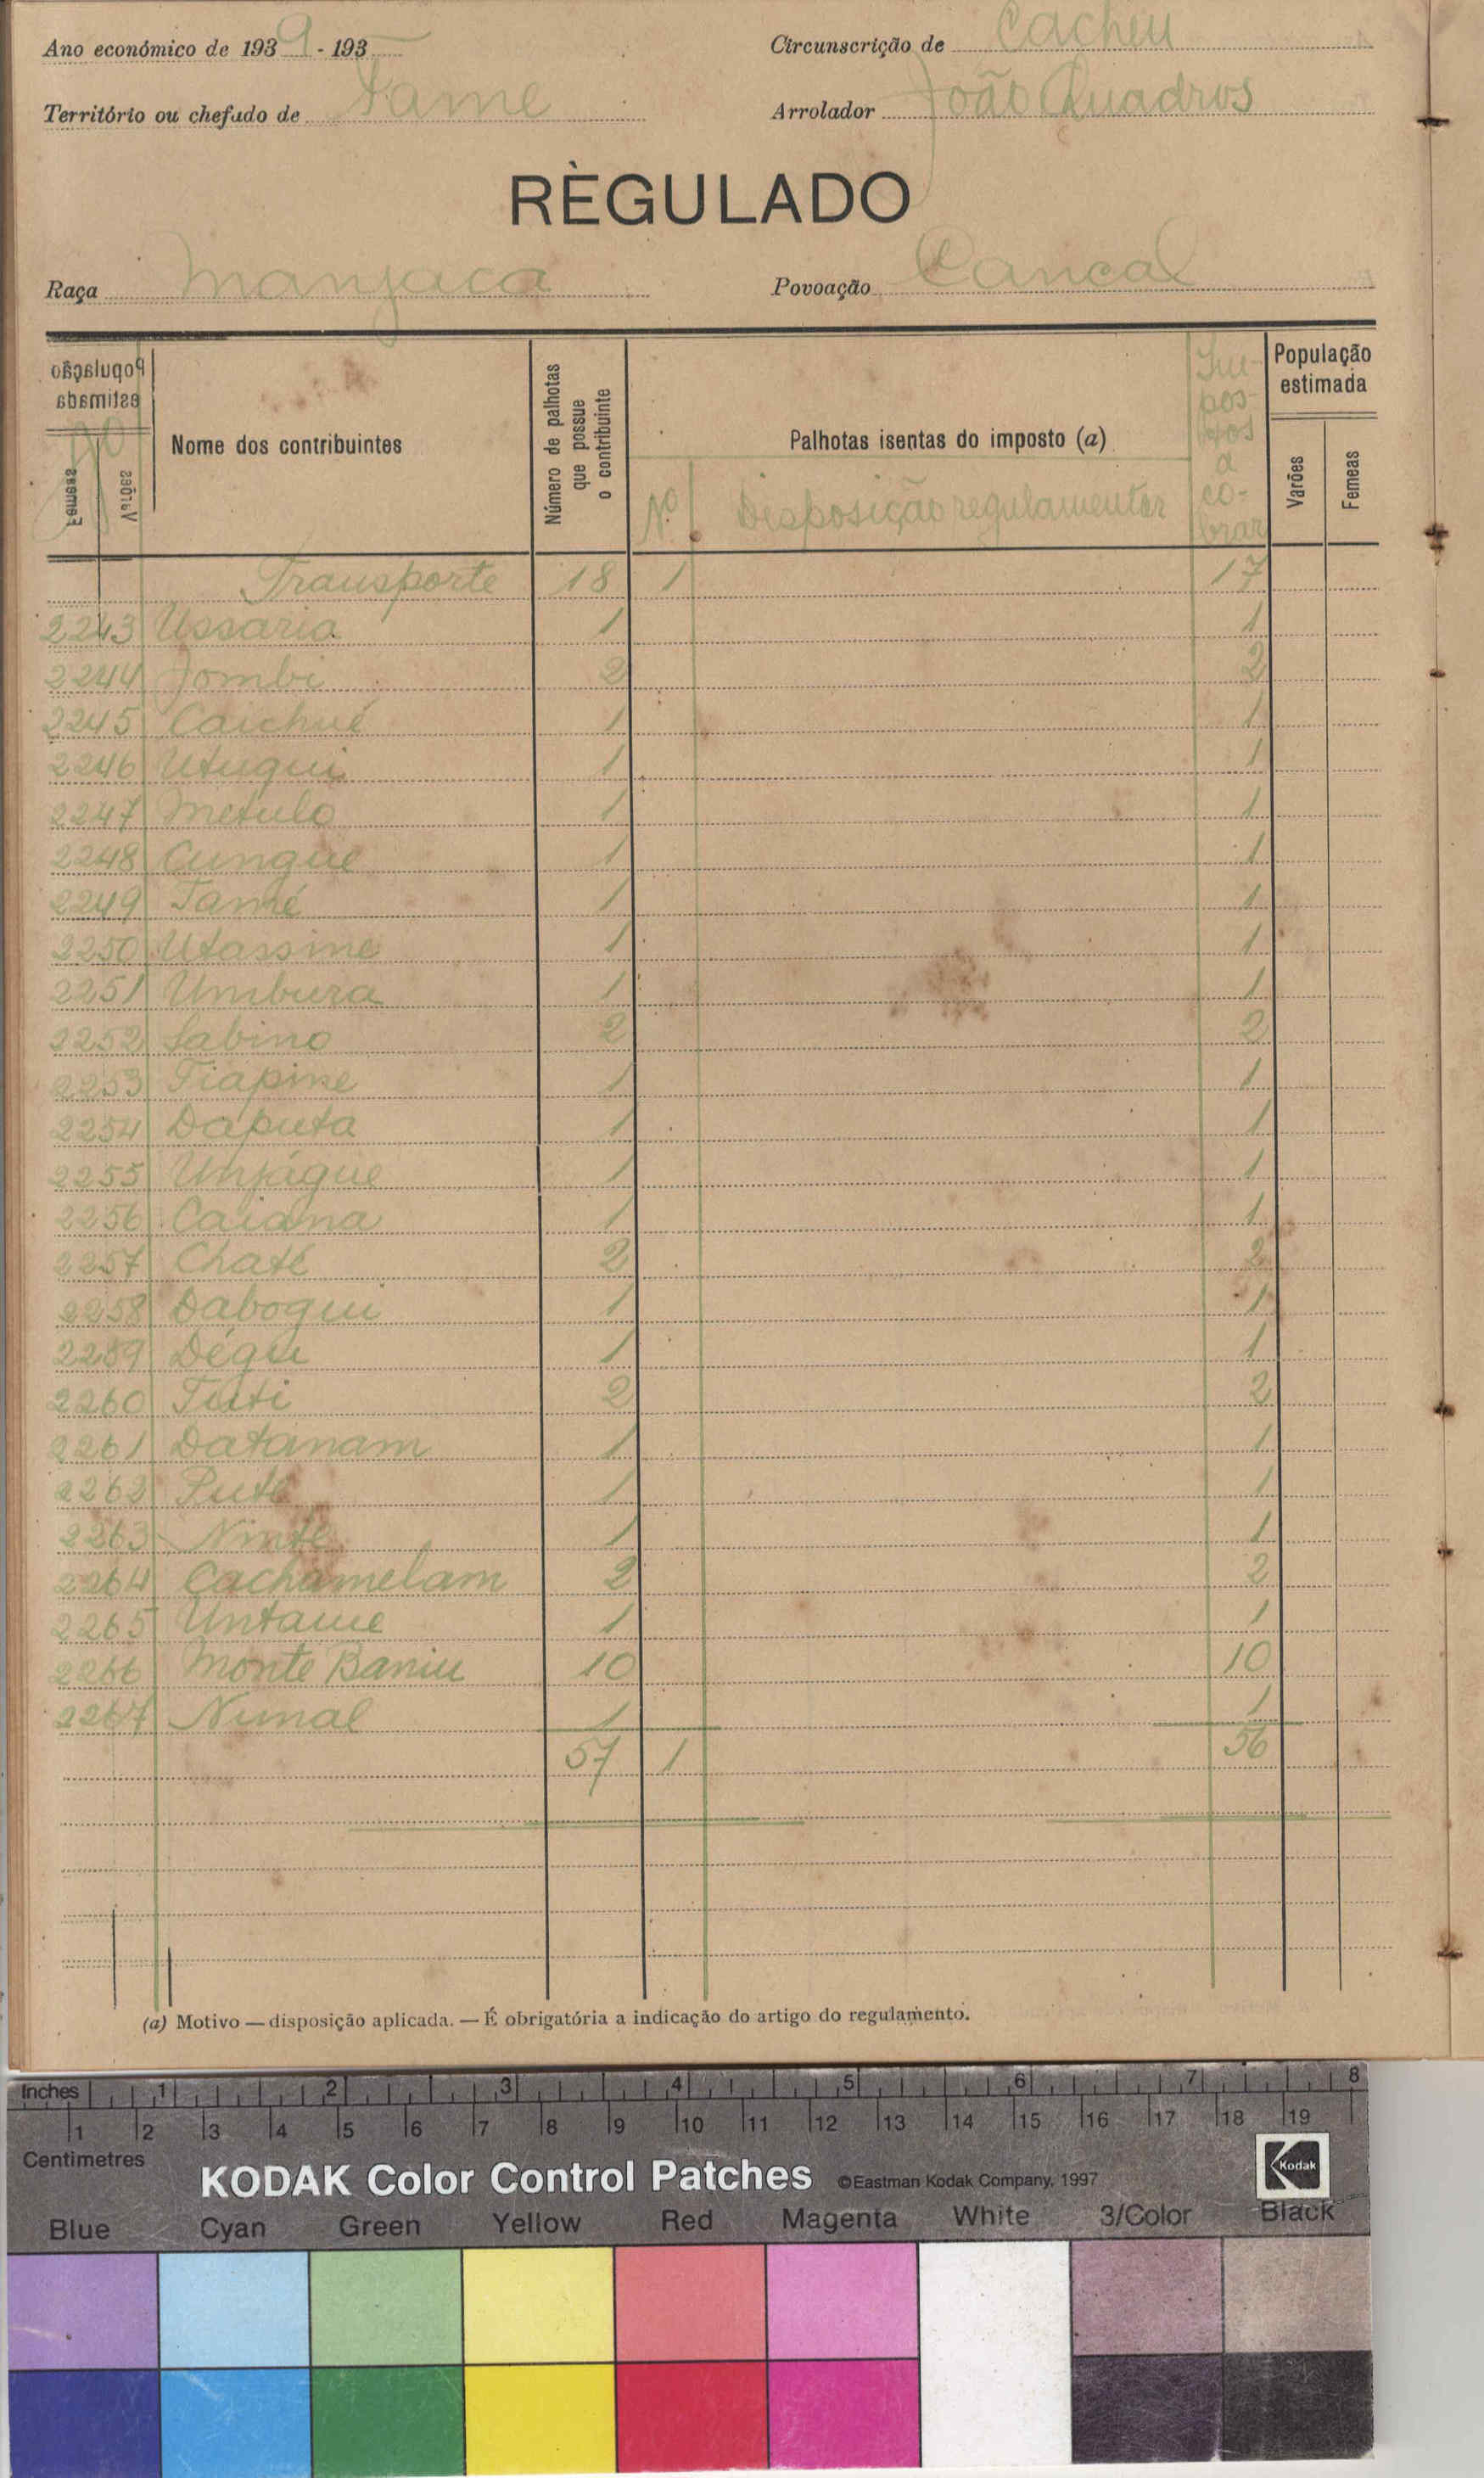 Ano económico de 1939 - 193
Circunscrição de Cacheu
Território ou chefado de Tame
Arrolador João Quadros
RÈGULADO
Raça Manjaca
Povoação Cancal
População estimada
Femeas
Varões
Nº
Nome dos contribuintes
Número de palhotas que possue o contribuinte
Palhotas isentas do imposto (a)
Nº
Disposição regulamentar
Impostos a cobrar
População estimada
Varões
Femeas
Transporte 18 1 17
2243 Ussaria 1 1
2244 Jombi 2 2
2245 Caichué 1 1
2246 Utuqui 1 1
2247 Metulo 1 1
2248 Cungue 1 1
2249 Tamé 1 1
2250 Utassine 1 1
2251 Umbura 1 1
2252 Sabino 2 2
2253 Tiapine 1 1
2254 Daputa 1 1
2255 Unjáque 1 1
2256 Caiana 1 1
2257 Chaté 2 2
2258 Daboqui 1 1
2259 Dégui 1 1
2260 Tuti 2 2
2261 Datanam 1 1
2262 Puté 1 1
2263 Ninté 1 1
2264 Cachamelam 2 2
2265 Untame 1 1
2266 Monte Baniu 10 10
2267 Nunal 1 1
57 1 56
(a) Motivo — disposição aplicada. — É obrigatória a indicação do artigo do regulamento.
Inches 1 2 3 4 5 6 7 8
1 2 3 4 5 6 7 8 9 10 11 12 13 14 15 16 17 18 19
Centimetres
KODAK Color Control Patches ©Eastman Kodak Company, 1997 Kodak
Blue Cyan Green Yellow Red Magenta White 3/Color Black